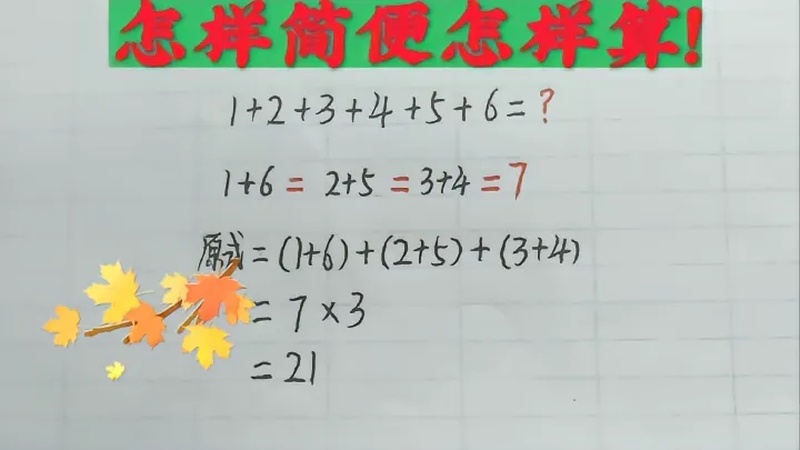 怎样简便怎样算!
1+2+3+4+5+6=?
1+6=2+5=3+4=7
原式=(1+6)+(2+5)+(3+4)
=7×3
=21